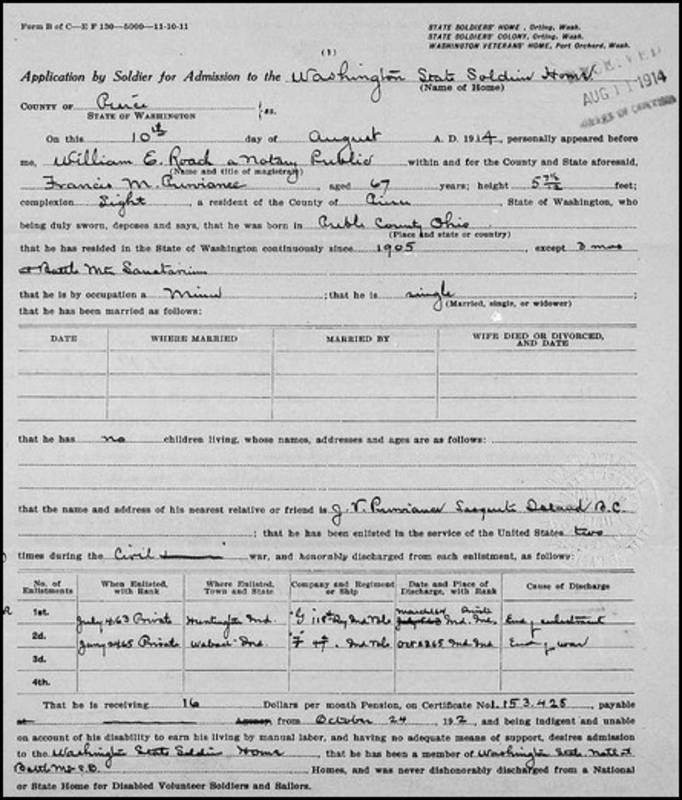 Form B of C—E F 130—5000—11-10-11
STATE SOLDIERS' HOME, Orting, Wash.
STATE SOLDIERS' COLONY, Orting, Wash.
WASHINGTON VETERANS' HOME, Port Orchard, Wash.
(1)
RECEIVED
AUG 11 1914
Application by Soldier for Admission to the Washington State Soldiers Home
(Name of Home)
COUNTY OF Pierce
STATE OF WASHINGTON } ss.
On this 10th day of August A. D. 1914, personally appeared before
me, William E. Roach a Notary Public within and for the County and State aforesaid,
(Name and title of magistrate)
Francis M. Purviance, aged 67 years; height 5 feet;
complexion Light, a resident of the County of Pierce, State of Washington, who
being duly sworn, deposes and says, that he was born in Preble County Ohio
(Place and state or country)
that he has resided in the State of Washington continuously since 1905, except 3 mos
at Battle Mtn Sanitarium
that he is by occupation a Miner; that he is single;
(Married, single, or widower)
that he has been married as follows:
DATE WHERE MARRIED MARRIED BY WIFE DIED OR DIVORCED, AND DATE
that he has no children living, whose names, addresses and ages are as follows:
that the name and address of his nearest relative or friend is J. V. Purviance Island B.C.
; that he has been enlisted in the service of the United States two
times during the Civil war, and honorably discharged from each enlistment, as follows:
No. of Enlistments When Enlisted, with Rank Where Enlisted, Town and State Company and Regiment or Ship Date and Place of Discharge, with Rank Cause of Discharge
1st. July 4 63 Private Huntington Ind. "G" 118th Ind Vols Ind. Ind. End of enlistment
2d. 65 Private Wabash Ind. "F" Ind Vols Ind. Ind End of war
3d.
4th.
That he is receiving 16 Dollars per month Pension, on Certificate No. 1.153.428, payable
from October 24, 192, and being indigent and unable
on account of his disability to earn his living by manual labor, and having no adequate means of support, desires admission
to the Washington State Soldiers Home, that he has been a member of Washington State. Natl &
Battle Mt S.D. Homes, and was never dishonorably discharged from a National
or State Home for Disabled Volunteer Soldiers and Sailors.